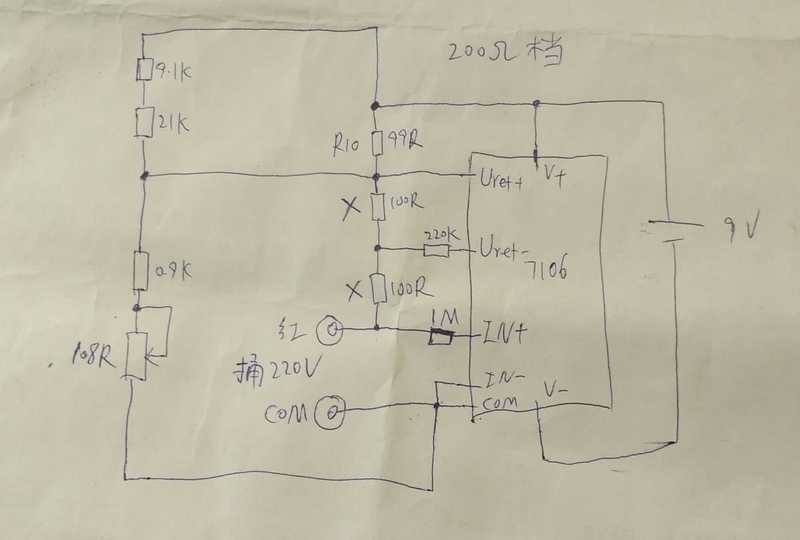 200Ω 档
9.1K
21K
R10 99R
Uret+ V+
X 100R
220K
Uret-
7106
9V
0.9K
X 100R
1M
红 IN+
108R
捅220V
IN-
V-
COM COM